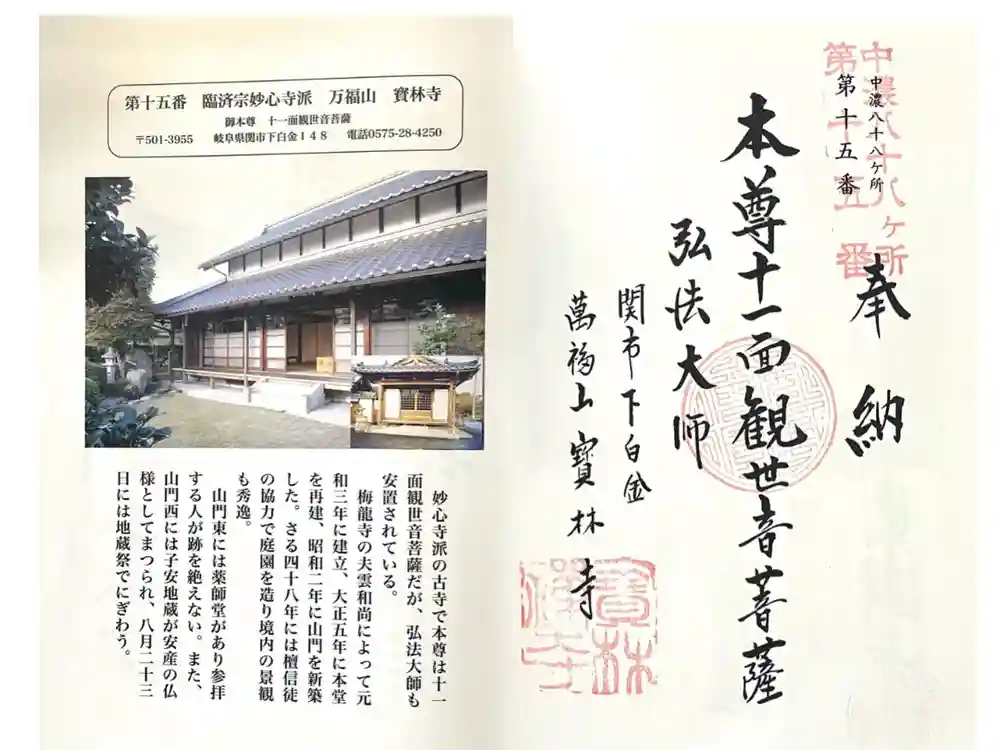 第十五番　臨済宗妙心寺派　万福山　寳林寺
御本尊　十一面観世音菩薩
〒501-3955　岐阜県関市下白金１４８　電話0575-28-4250
妙心寺派の古寺で本尊は十一
面観世音菩薩だが、弘法大師も
安置されている。
梅龍寺の夫雲和尚によって元
和三年に建立、大正五年に本堂
を再建、昭和二年に山門を新築
した。さる四十八年には檀信徒
の協力で庭園を造り境内の景観
も秀逸。
山門東には薬師堂があり参拝
する人が跡を絶えない。また、
山門西には子安地蔵が安産の仏
様としてまつられ、八月二十三
日には地蔵祭でにぎわう。
中濃八十八ヶ所
第十五番
中濃八十八ヶ所
第十五番
奉納
本尊十一面観世音菩薩
弘法大師
関市下白金
萬福山寳林寺
寳林